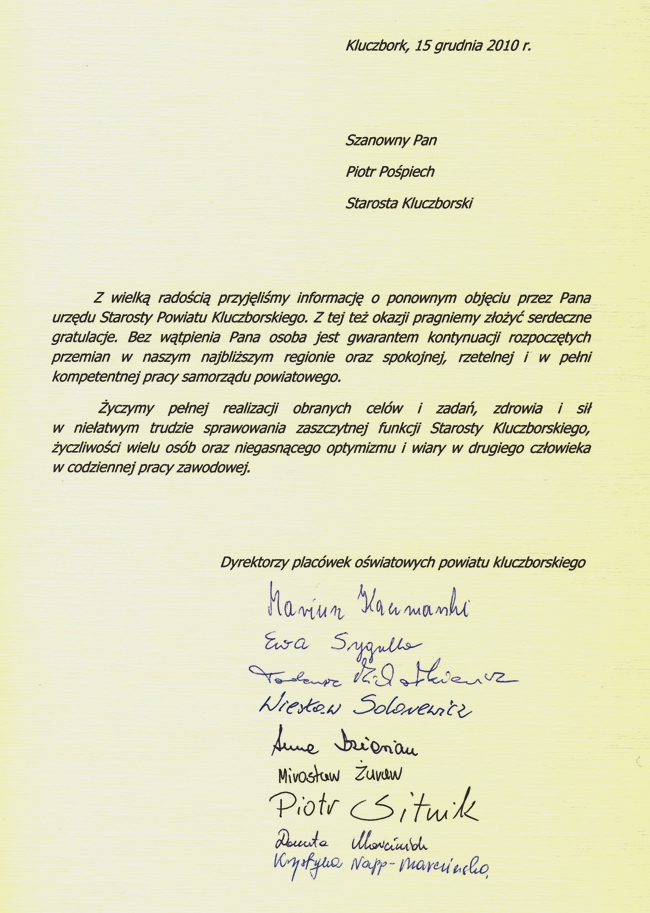 Kluczbork, 15 grudnia 2010 r.
Szanowny Pan
Piotr Pośpiech
Starosta Kluczborski
Z wielką radością przyjęliśmy informację o ponownym objęciu przez Pana
urzędu Starosty Powiatu Kluczborskiego. Z tej też okazji pragniemy złożyć serdeczne
gratulacje. Bez wątpienia Pana osoba jest gwarantem kontynuacji rozpoczętych
przemian w naszym najbliższym regionie oraz spokojnej, rzetelnej i w pełni
kompetentnej pracy samorządu powiatowego.
Życzymy pełnej realizacji obranych celów i zadań, zdrowia i sił
w niełatwym trudzie sprawowania zaszczytnej funkcji Starosty Kluczborskiego,
życzliwości wielu osób oraz niegasnącego optymizmu i wiary w drugiego człowieka
w codziennej pracy zawodowej.
Dyrektorzy placówek oświatowych powiatu kluczborskiego
Mariusz
Ewa Sygulla
Tadeusz
Wiesław Solarewicz
Anna
Mirosław Żuraw
Piotr Sitnik
Danuta
Krystyna Napp-Marcińska